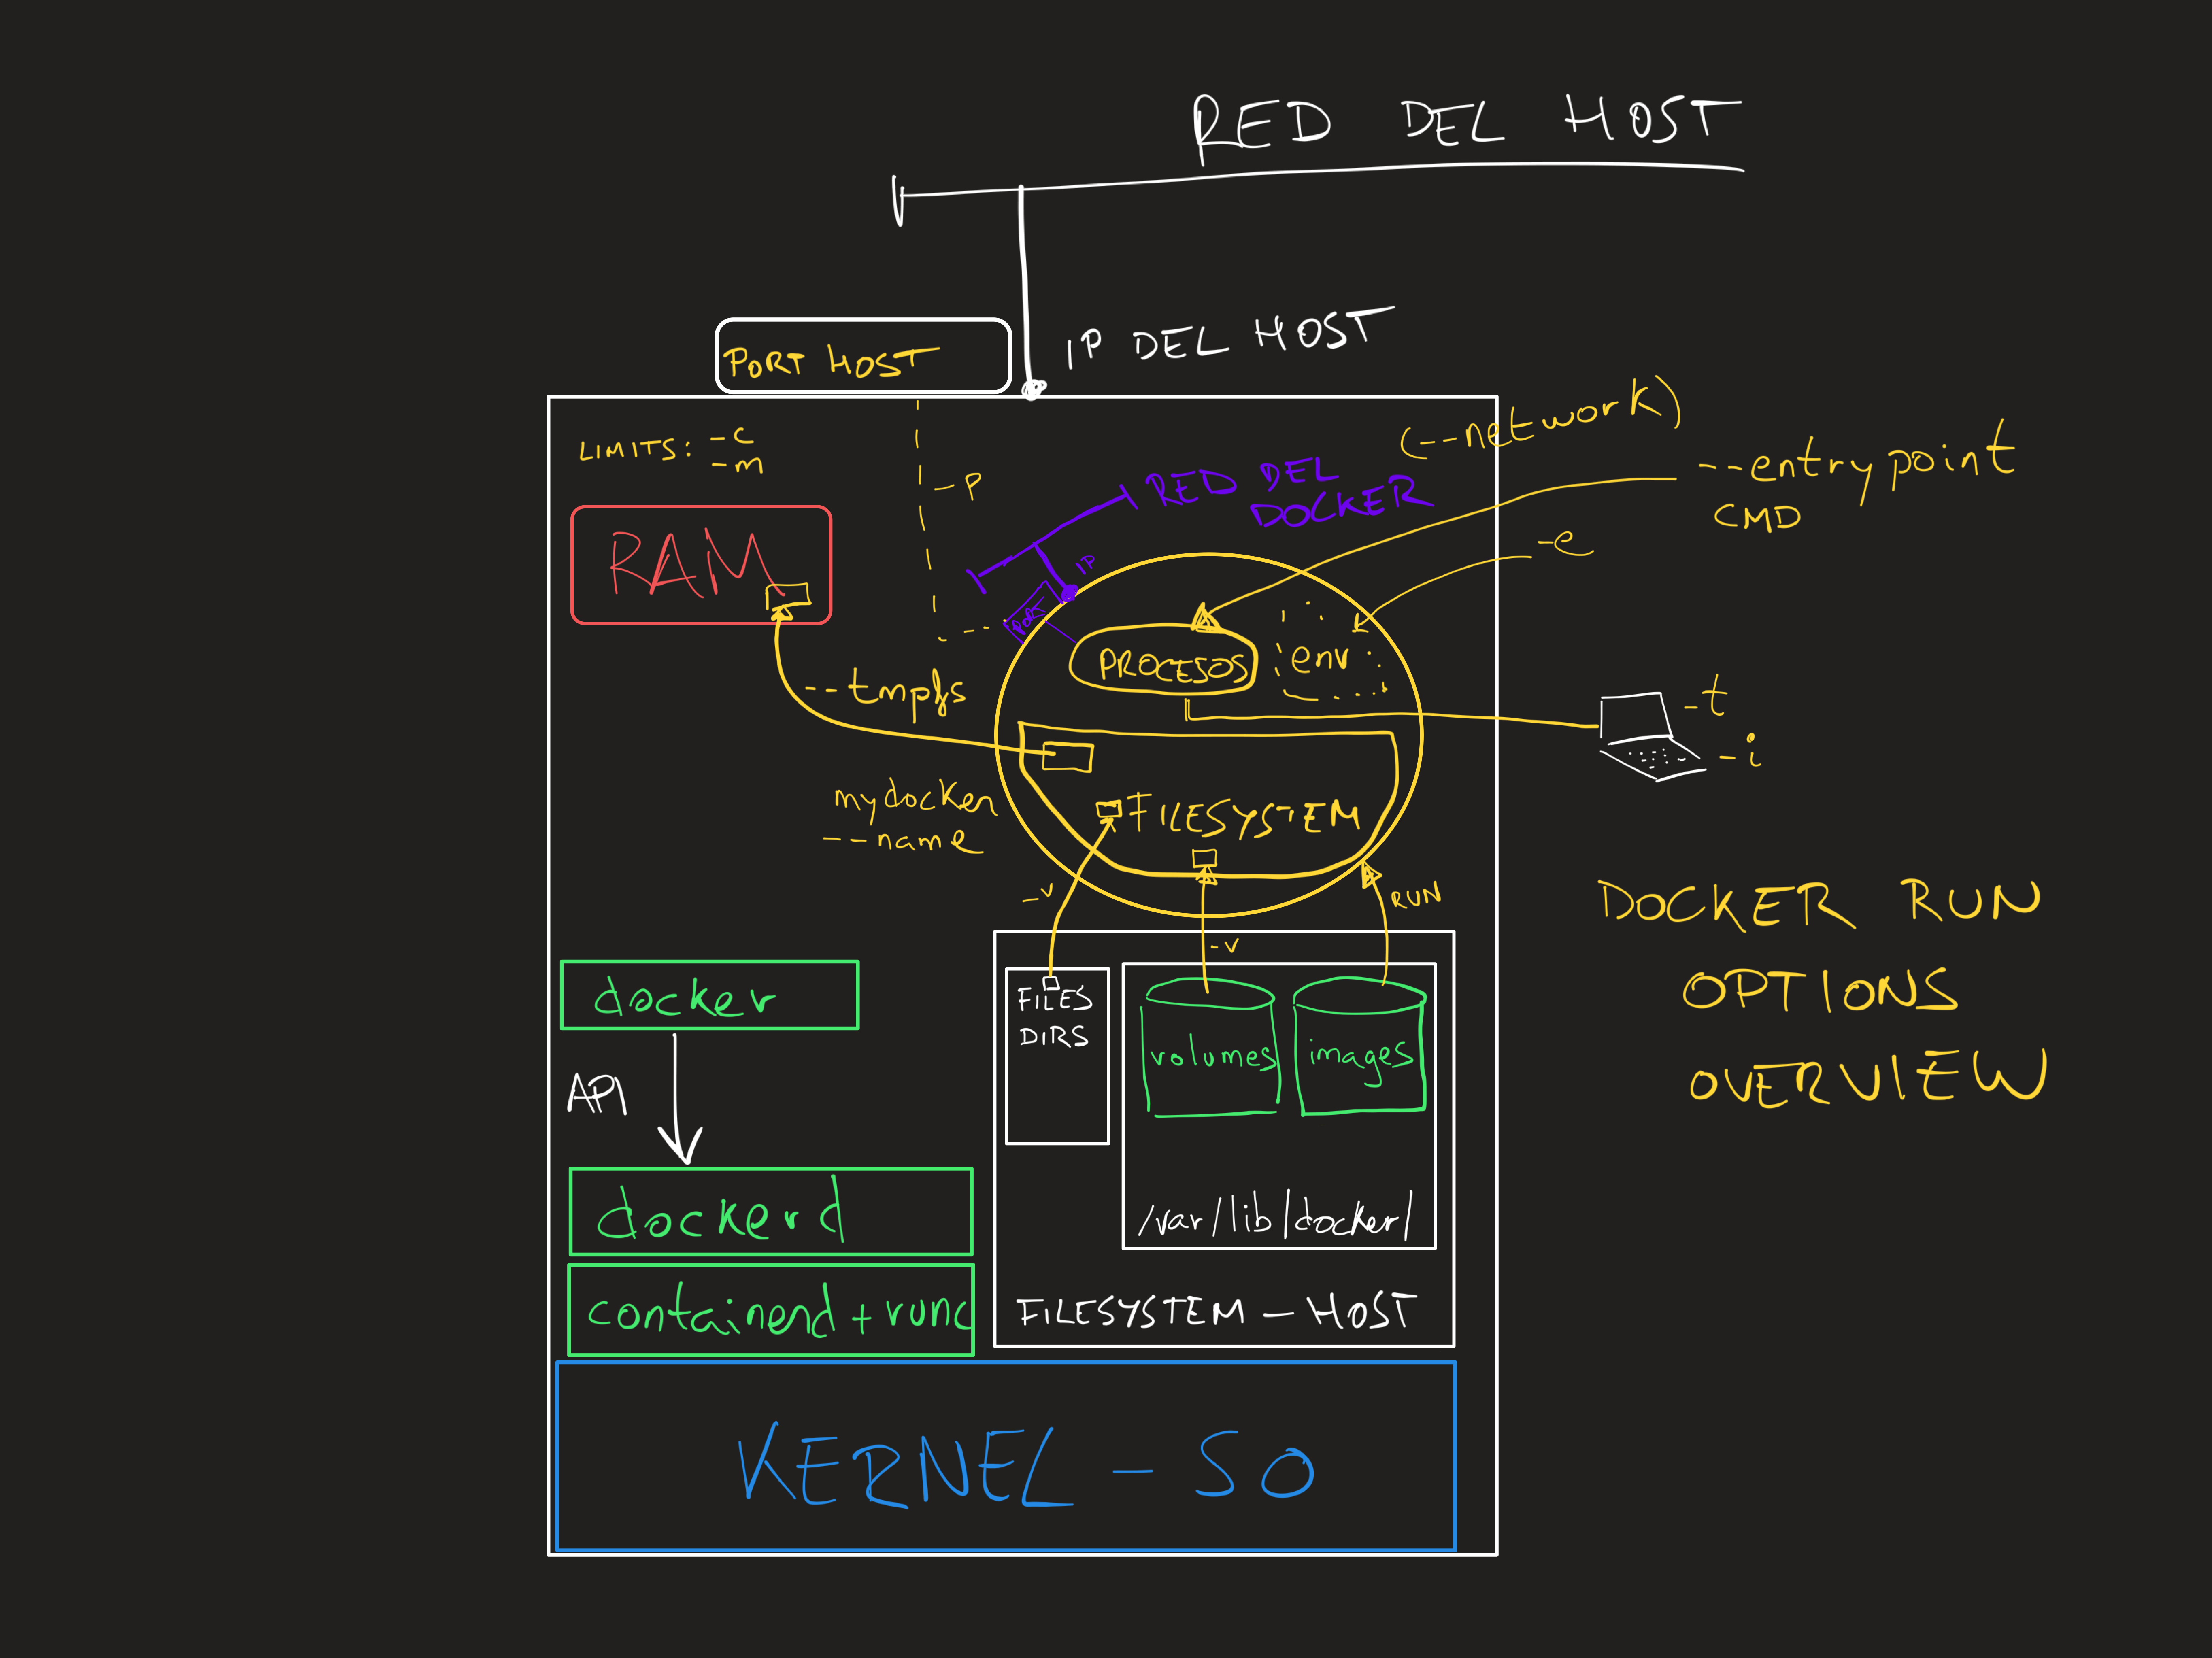 RED DEL HOST
IP DEL HOST
PORT HOST
LIMITS: -c
-m
-P
(--network)
--entrypoint
CMD
-e
RED DEL
DOCKER
IP
PORT
RAM
PROCESOS
env
--tmpfs
-t
-i
mydocker
--name
FILESYSTEM
-v
-v
RUN
DOCKER RUN
OPTIONS
OVERVIEW
docker
API
dockerd
containerd+runc
FILES
DIRS
volumes
images
/var/lib/docker/
FILESYSTEM-HOST
KERNEL-SO